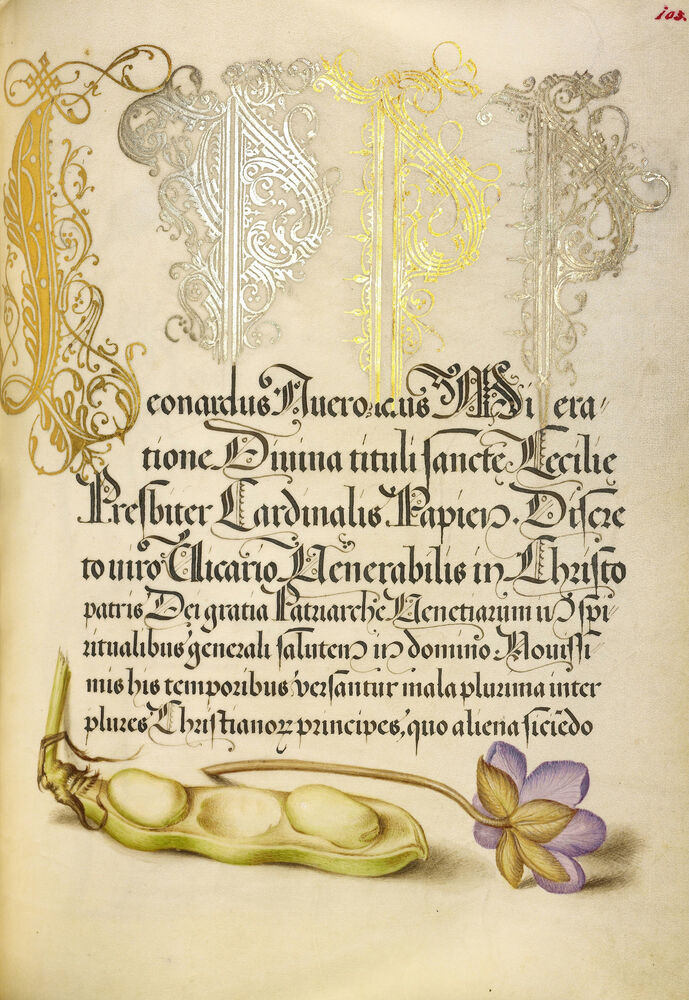 103.
L P P P
eonardus Nueronicus Miſera
tione Divina tituli ſancte Cecilie
Preſbiter Cardinalis Papien. Diſcre
to viro Vicario Venerabilis in Chriſto
patris Dei gratia Patriarche Venetiarum in ſpi
ritualibus generali ſalutem in domino. Nouiſſi
mis his temporibus verſantur mala plurima inter
plures Chriſtianorꝝ principes, quo aliena ſiciēdo